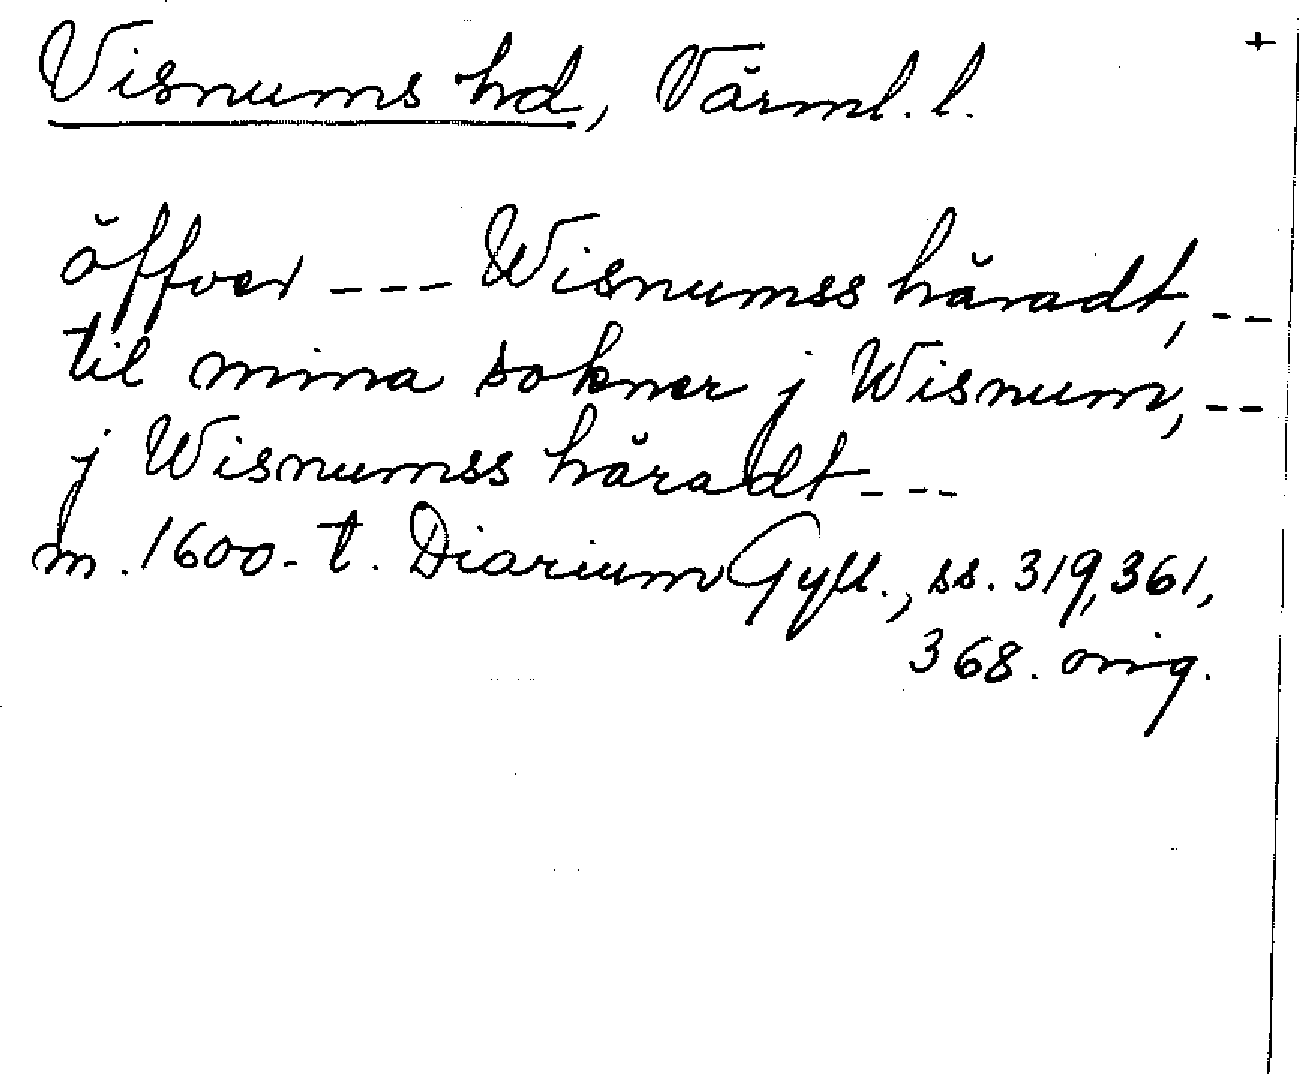 Visnums hd, Värml. l. +
öffver --- Wisnumss häradt, --
til mina sokner j Wisnum, --
j Wisnumss häradt ---
m. 1600-t. Diarium Gyll., ss. 319, 361,
368. orig.